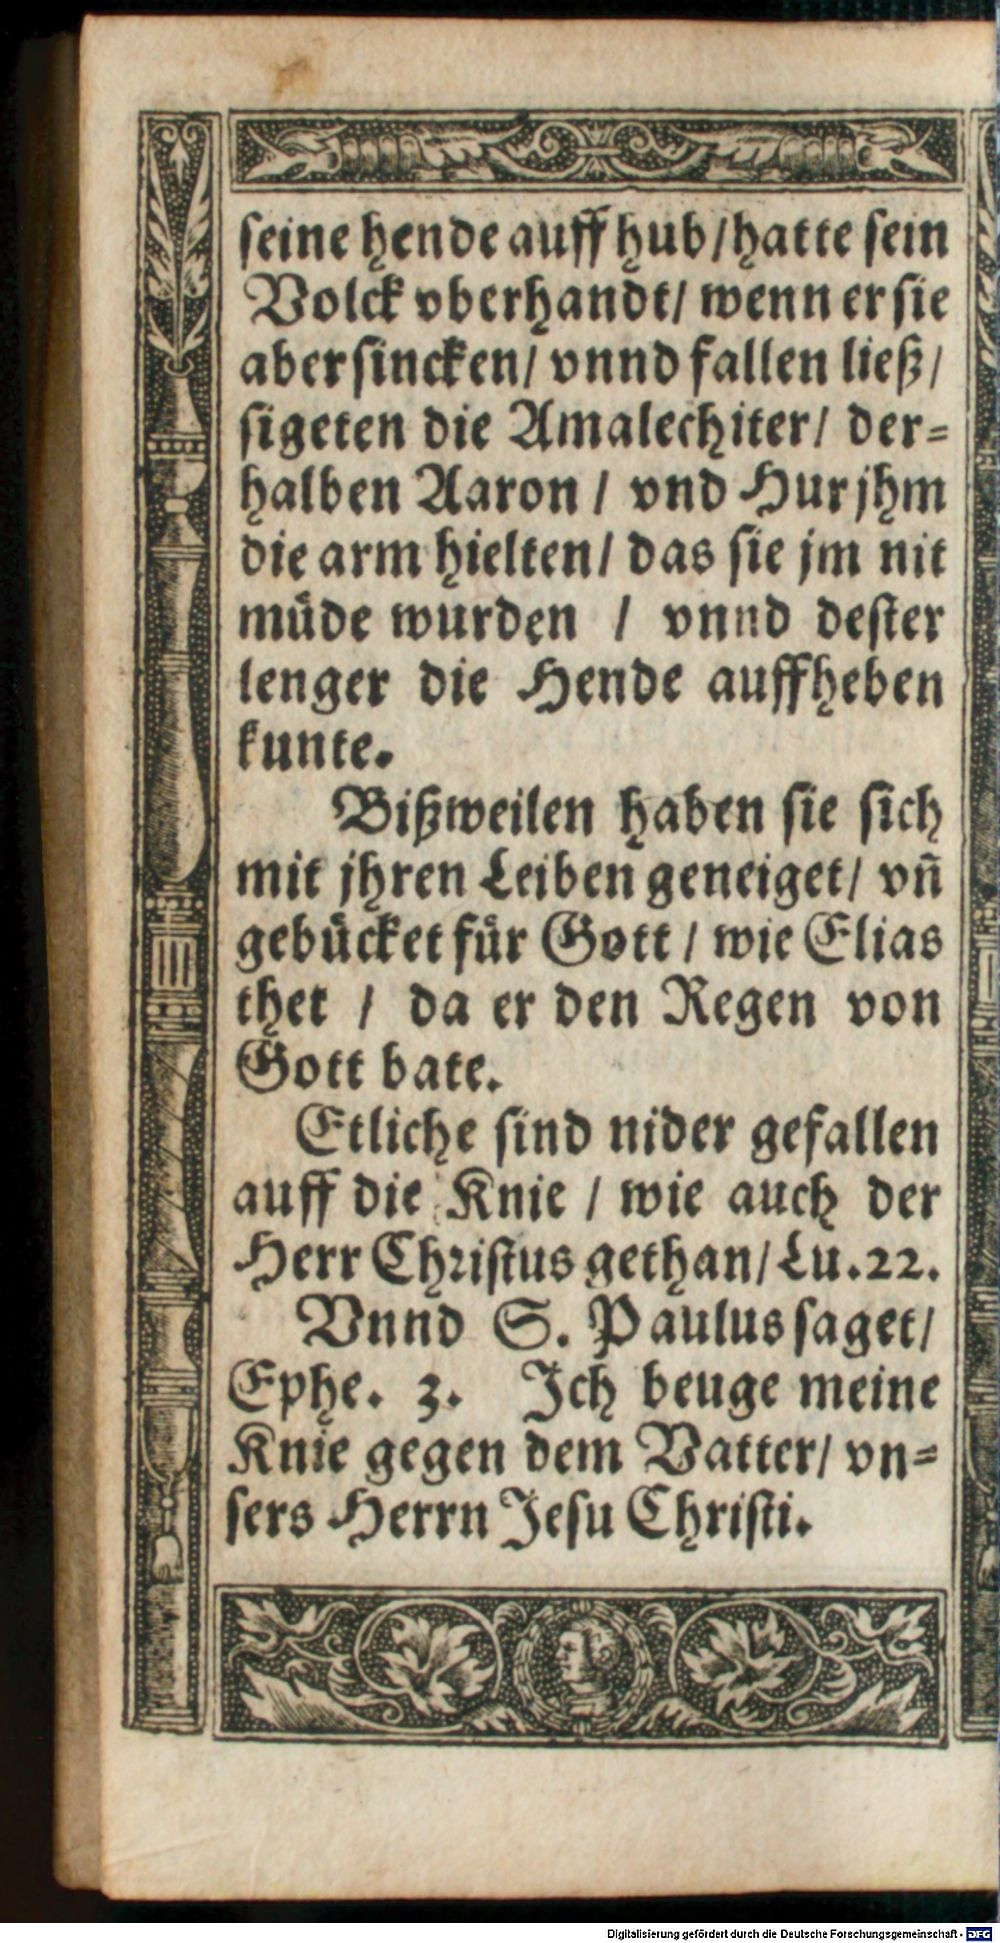 seine hende auff hub / hatte sein
Volck vberhandt / wenn er sie
aber sincken / vnnd fallen ließ /
sigeten die Amalechiter / der=
halben Aaron / vnd Hur jhm
die arm hielten / das sie jm nit
muͤde wurden / vnnd dester
lenger die Hende auffheben
kunte.
Bißweilen haben sie sich
mit jhren Leiben geneiget / vñ
gebuͤcket fuͤr Gott / wie Elias
thet / da er den Regen von
Gott bate.
Etliche sind nider gefallen
auff die Knie / wie auch der
Herr Christus gethan / Lu. 22.
Vnnd S. Paulus saget /
Ephe. 3. Ich beuge meine
Knie gegen dem Vatter / vn=
sers Herrn Jesu Christi.
Digitalisierung gefördert durch die Deutsche Forschungsgemeinschaft - DFG